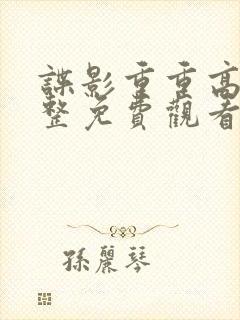 諜影重重高
整免費觀看
孫麗琴